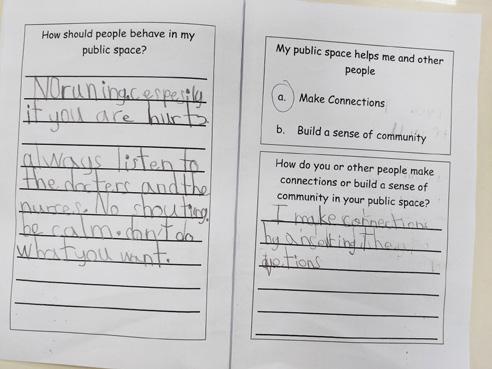 How should people behave in my
public space?
NO runing.cespesily
if you are hurt
always listen to
the docters and the
nurses. No shouting.
be calm. don't do
what you want.
My public space helps me and other
people
a. Make Connections
b. Build a sense of community
How do you or other people make
connections or build a sense of
community in your public space?
I make connections
by ansering the
qotions